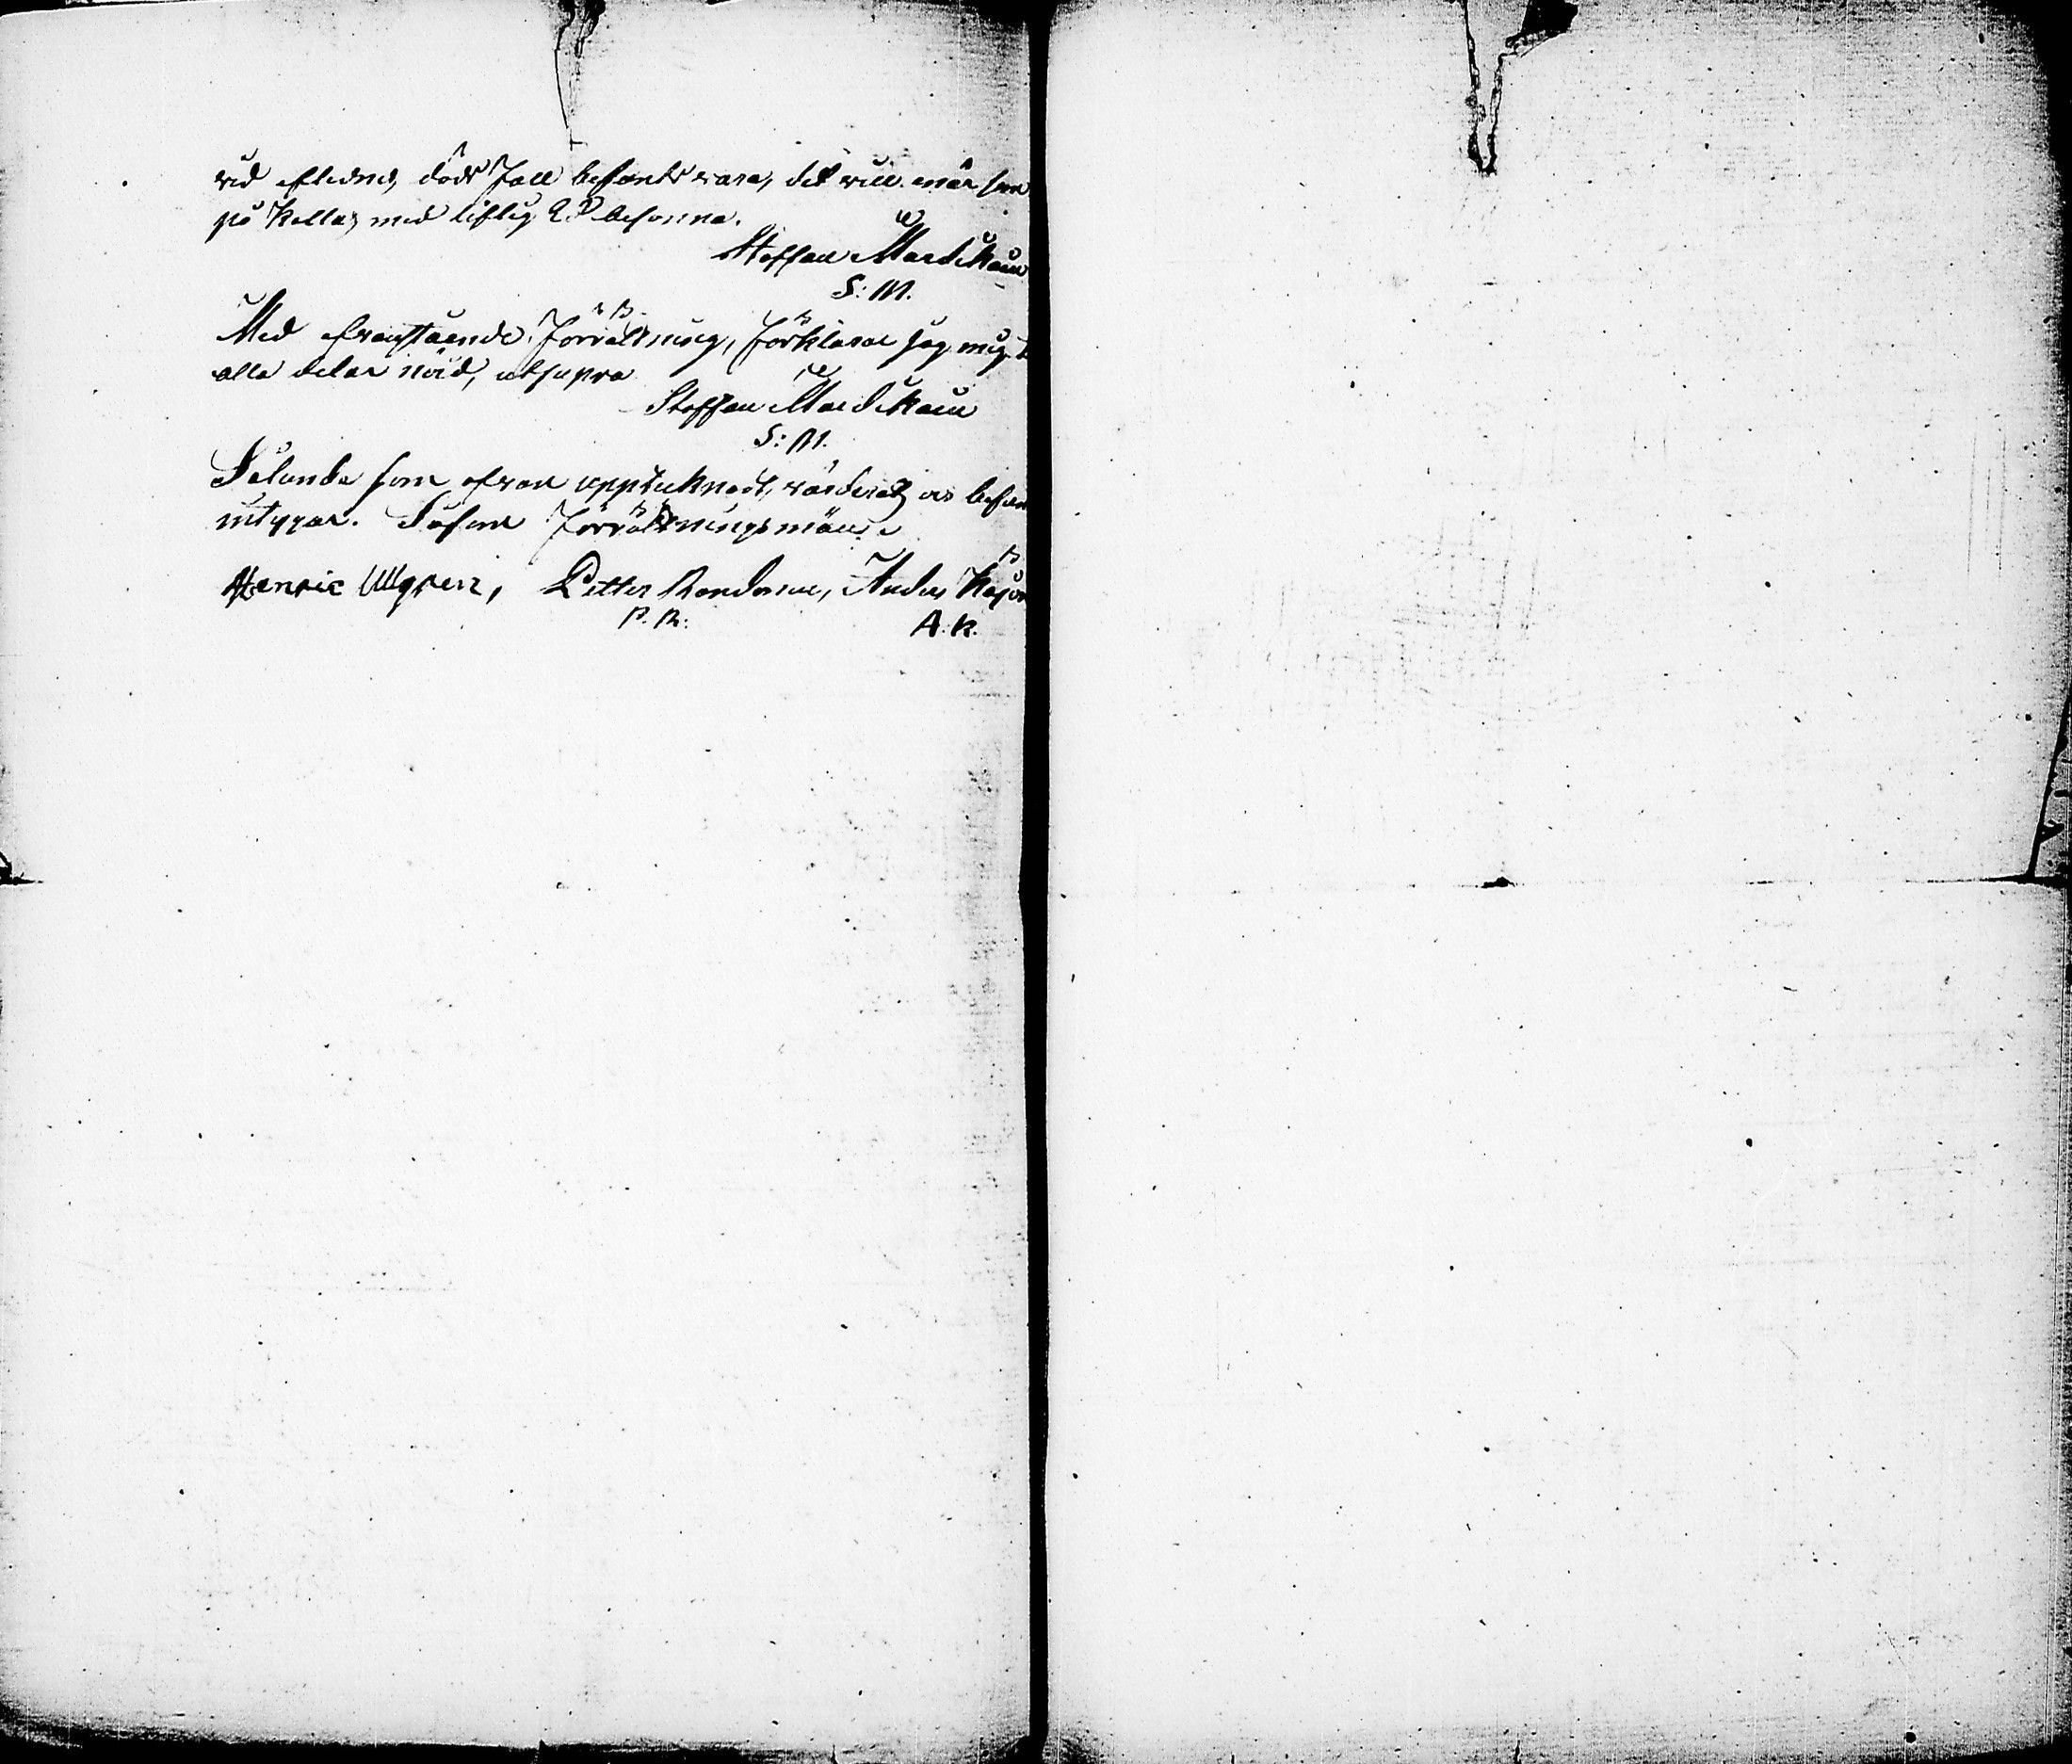 vid efledne, döds fall befants vara, det vill enär som
på kallas med liflig Ed besanna.
Staffan Mardikain
S: M.
Med ofvanstående Förrättning, förklarar jag mig t
alla delar nöid, utsupra
Staffan Mardikain
S: M.
Sålunda som ofvan upptecknadt, värderat och befun
intygar. Såsom Förrättningsmän
Henric Ullgren, Petter Rondonen, Anders Kajon
P. R: A. K.